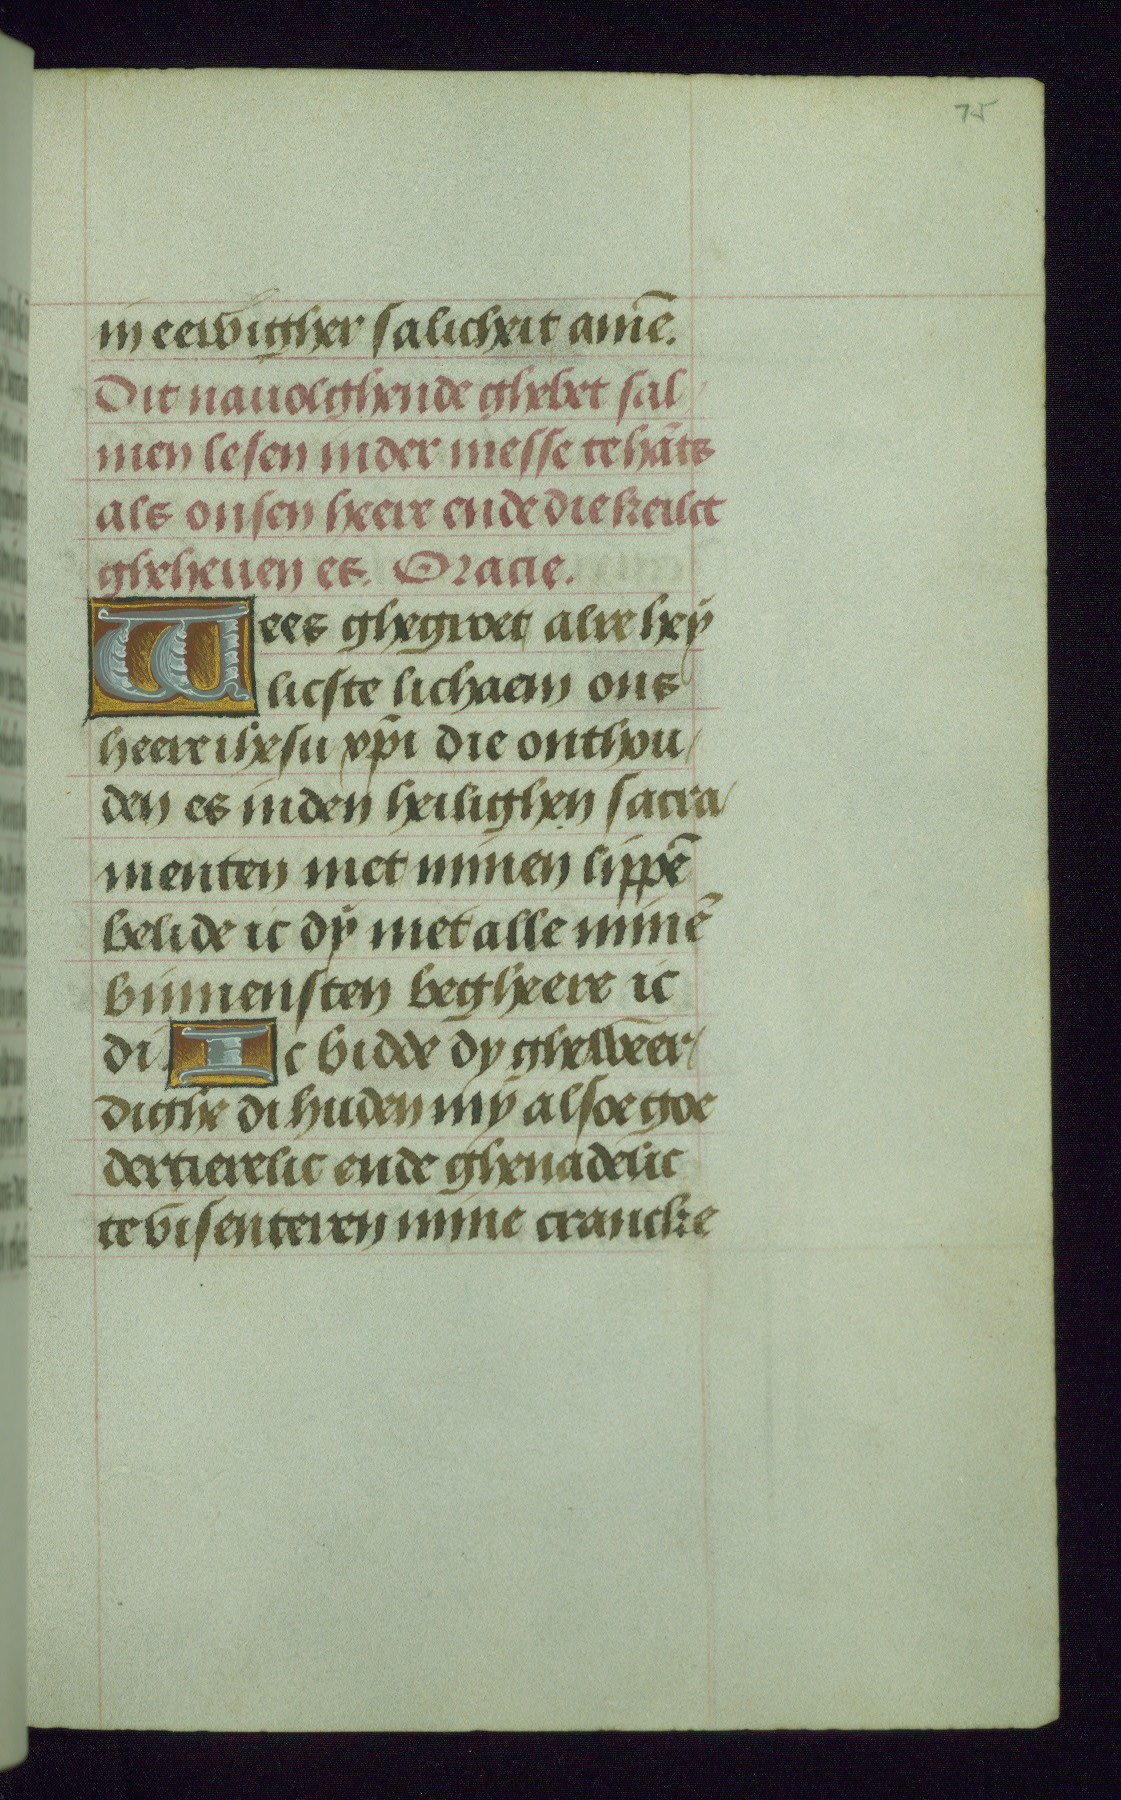 75
in eewigher salicheit amē.
Dit nauolghende ghebet sal/
men lesen in der messe te hāts
als onsen heere ende die kelct
gheheuen es. Oracie.
Wees ghegroet alre hey
licste lichaem ons
heere ihesu xp̄i die onthou/
den es in den heilighen sacra/
menten met minen lippē
belide ic dÿ met alle minē
binnensten begheere ic
di. Ic bidde dy ghewēer/
dighe di huden mÿ alsoe goe
dertierelic ende ghenadelic
te visenteren mine crancke